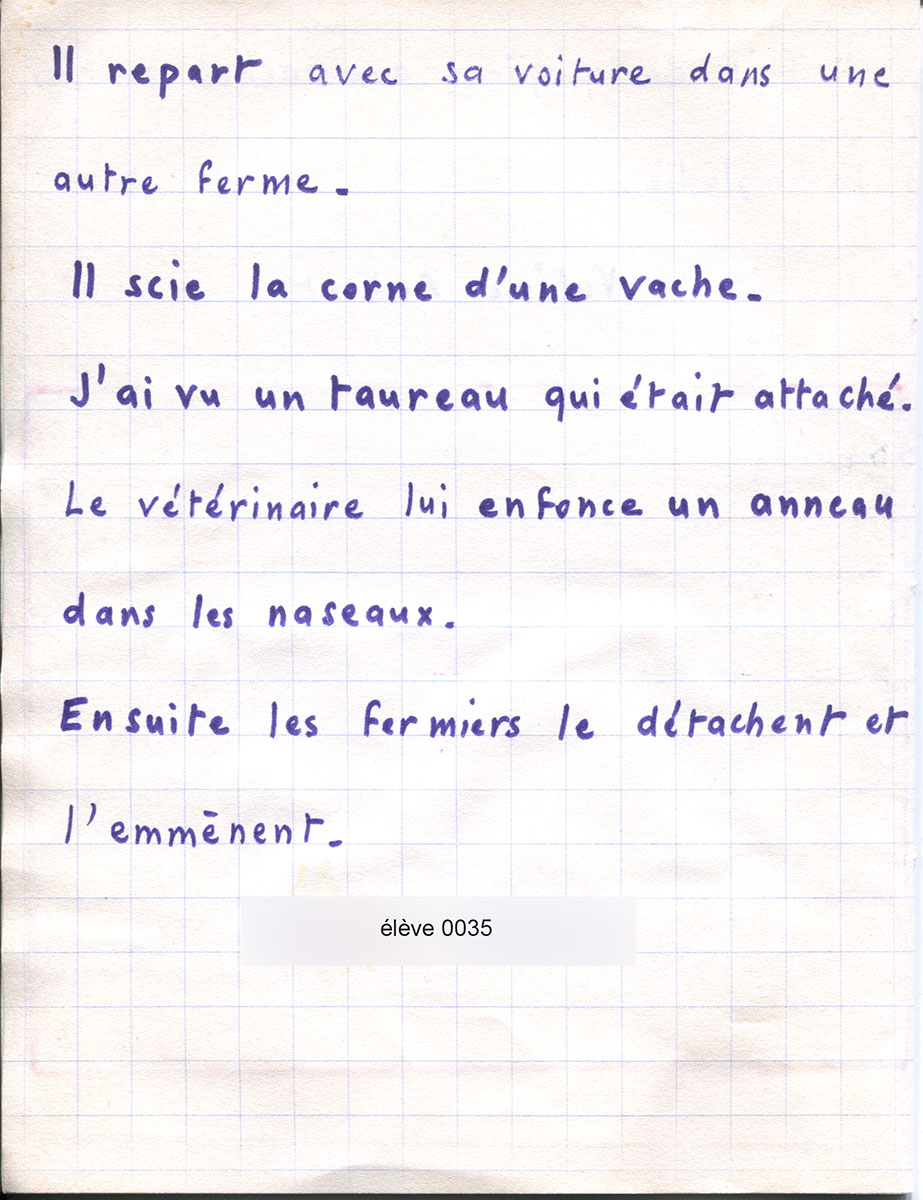 Il repart avec sa voiture dans une
autre ferme.
Il scie la corne d'une vache.
J'ai vu un taureau qui était attaché.
Le vétérinaire lui enfonce un anneau
dans les naseaux.
Ensuite les fermiers le détachent et
l'emmènent.
élève 0035